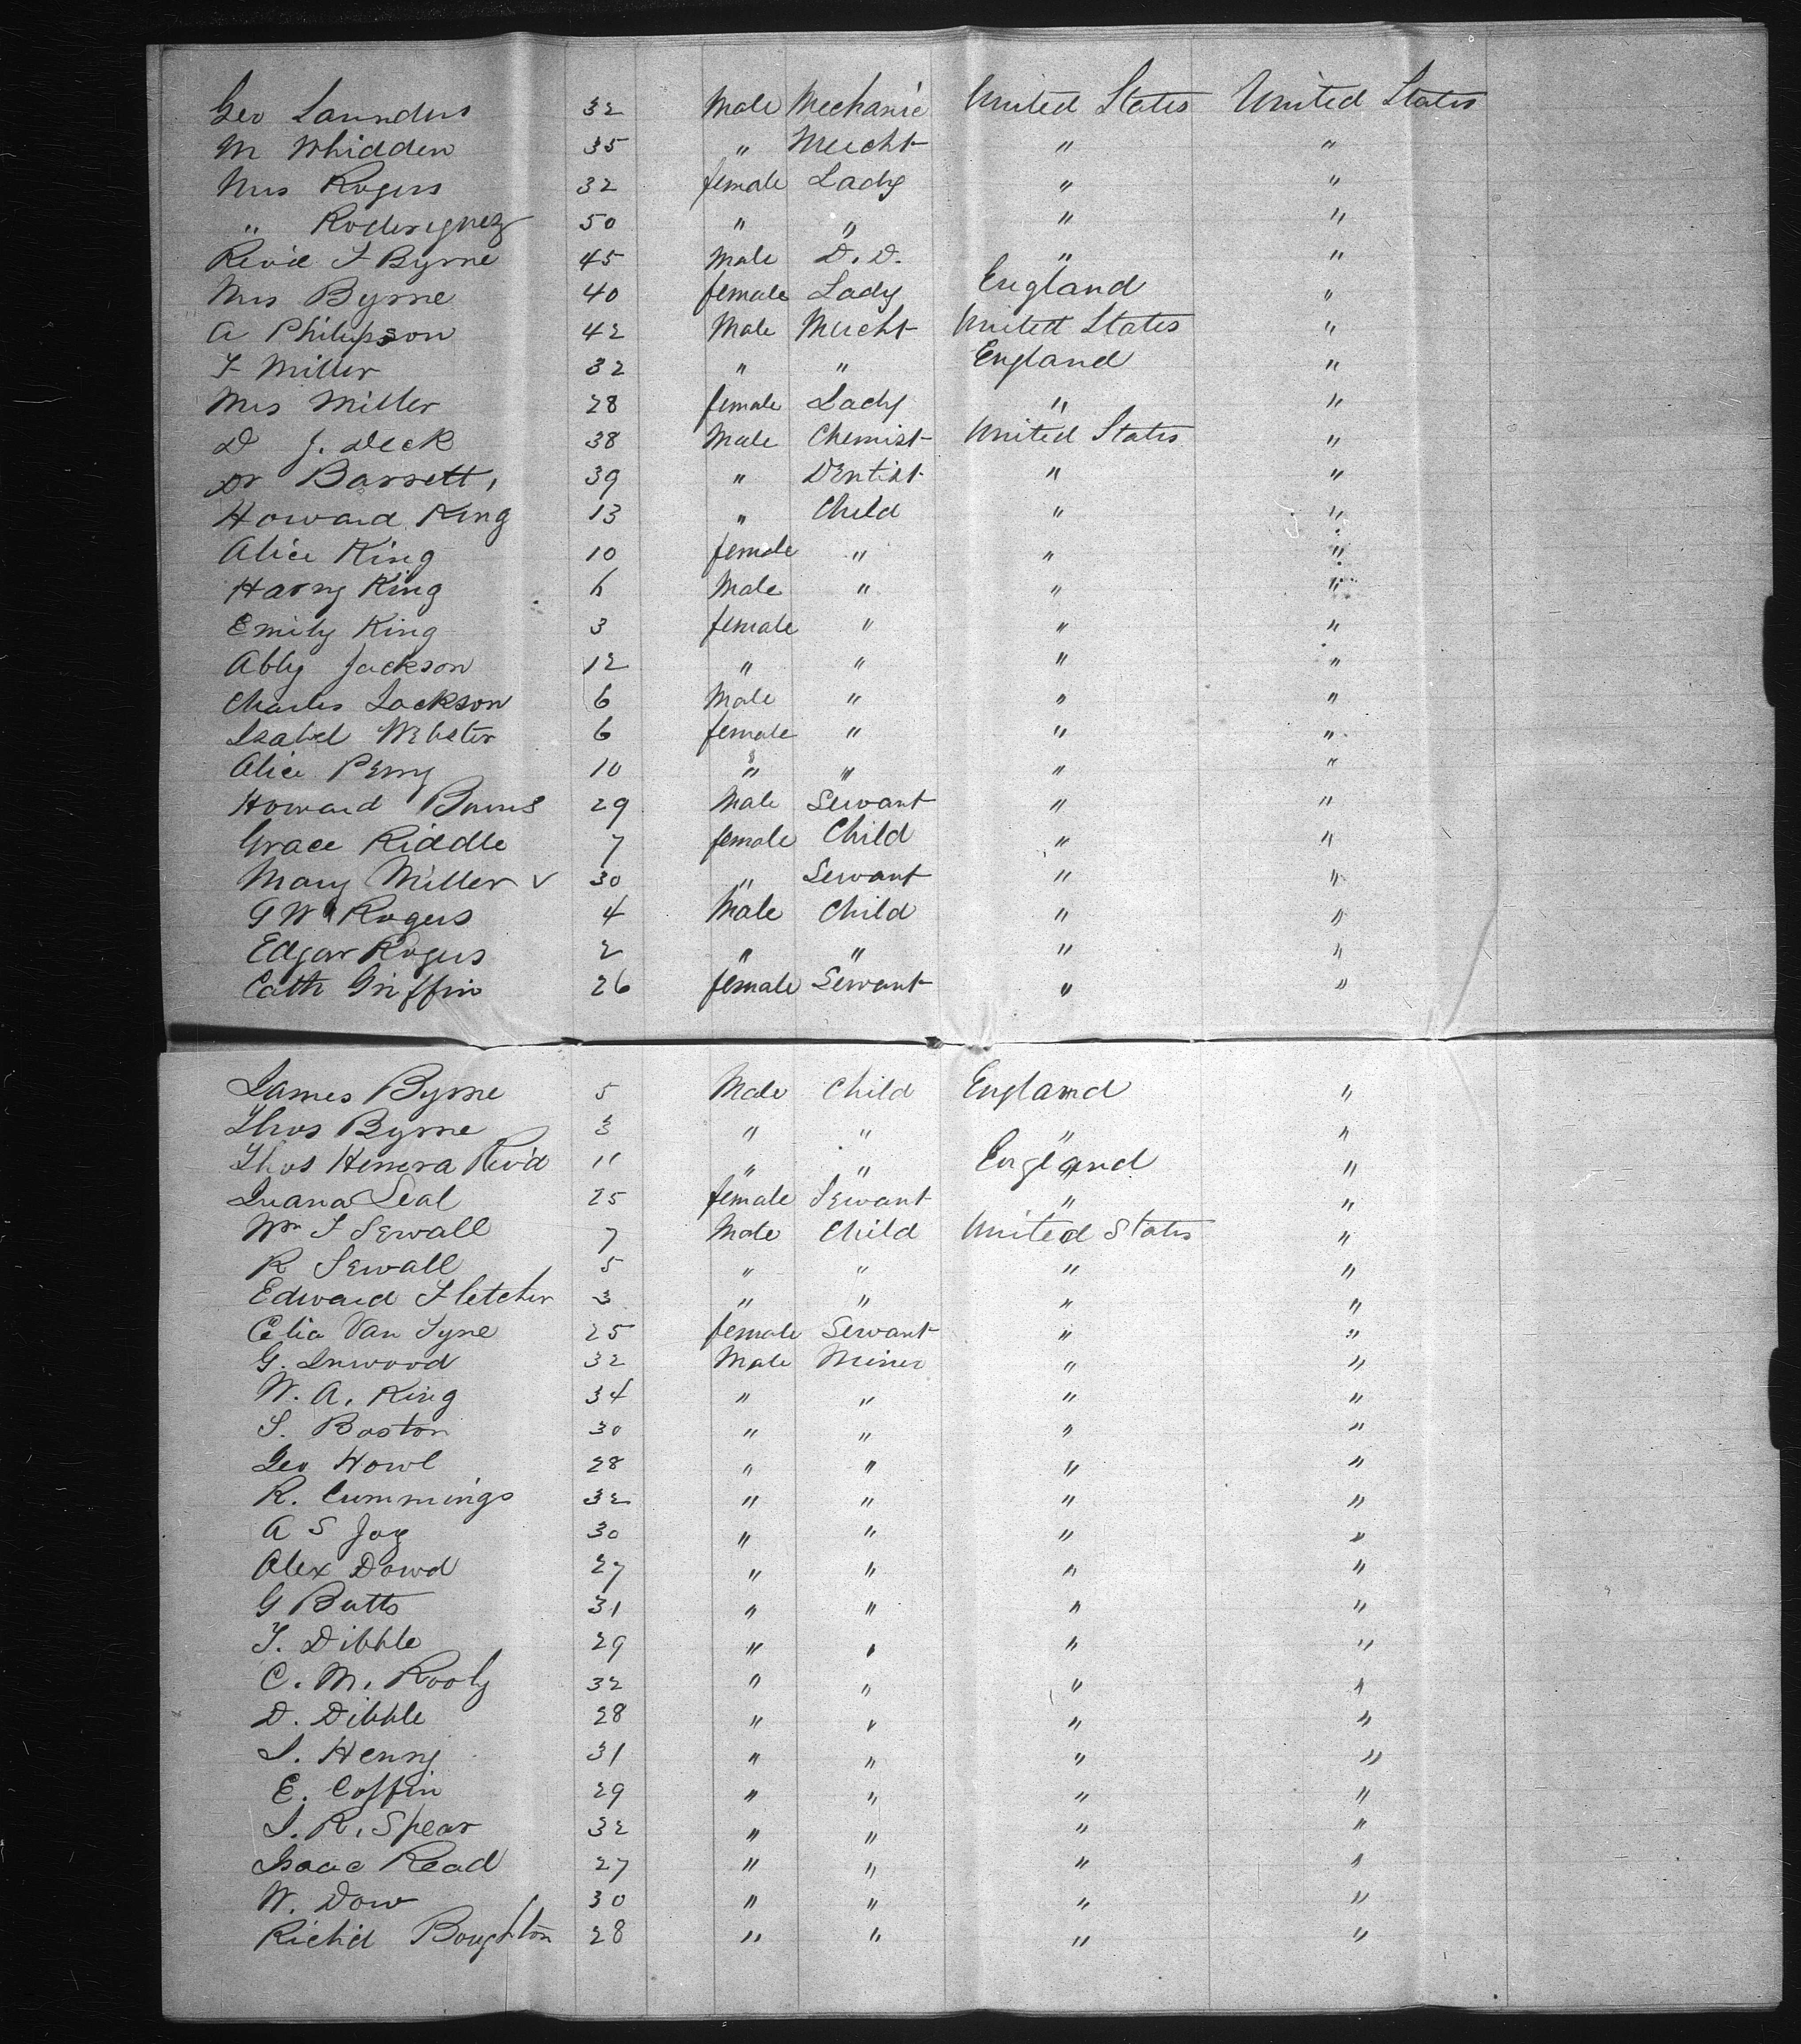 Geo Saunders 32 Male Mechanic United States United States
M Whidden 35 " Mercht " "
Mrs Rogers 32 female Lady " "
" Roderiguez 50 " " " "
Rev'd F Byrne 45 Male D. D. " "
Mrs Byrne 40 female Lady England "
A Philipson 42 Male Mercht United States "
F Miller 32 " " England "
Mrs Miller 28 female Lady " "
D J. Deck 38 Male Chemist United States "
Dr Barrett, 39 " Dentist " "
Howard King 13 " Child " "
Alice King 10 female " " "
Harry King 6 Male " " "
Emily King 3 female " " "
Abby Jackson 12 " " " "
Charles Jackson 6 Male " " "
Isabel Webster 6 female " " "
Alice Perry 10 " " " "
Howard Burns 29 Male Servant " "
Grace Riddle 7 female Child " "
Mary Miller v 30 " Servant " "
G W Rogers 4 Male Child " "
Edgar Rogers 2 " " " "
Cath Griffin 26 female Servant " "
James Byrne 5 Male Child England "
Thos Byrne 3 " " " "
Thos Herrera Rev'd 11 " " England "
Juana Leal 25 female Servant " "
Wm F Sewall 7 Male Child United States "
R Sewall 5 " " " "
Edward Fletcher 3 " " " "
Celia Van Tyne 25 female Servant " "
G. Inwood 32 Male Miner " "
W. A. King 34 " " " "
S. Boston 30 " " " "
Geo Howl 28 " " " "
R. Cummings 32 " " " "
A S Joy 30 " " " "
Alex Dowd 27 " " " "
G Butts 31 " " " "
T. Dibble 29 " " " "
C. M. Rooly 32 " " " "
D. Dibble 28 " " " "
J. Henry 31 " " " "
E. Coffin 29 " " " "
J. R. Spear 32 " " " "
Isaac Read 27 " " " "
W. Dow 30 " " " "
Rich'd Boughton 28 " " " "